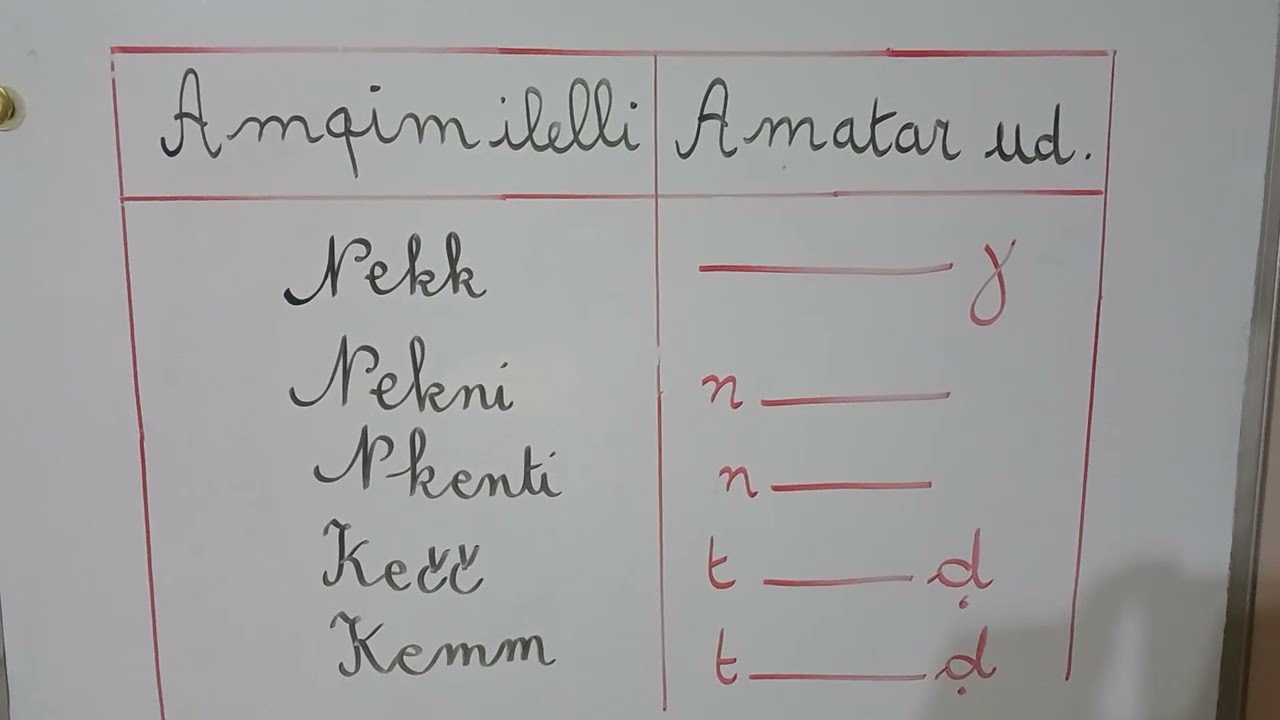 Amqim ilelli Amatar ud.
Nekk ——— ɣ
Nekni n ———
Nkenti n ———
Kečč t ——— ḍ
Kemm t ——— ḍ